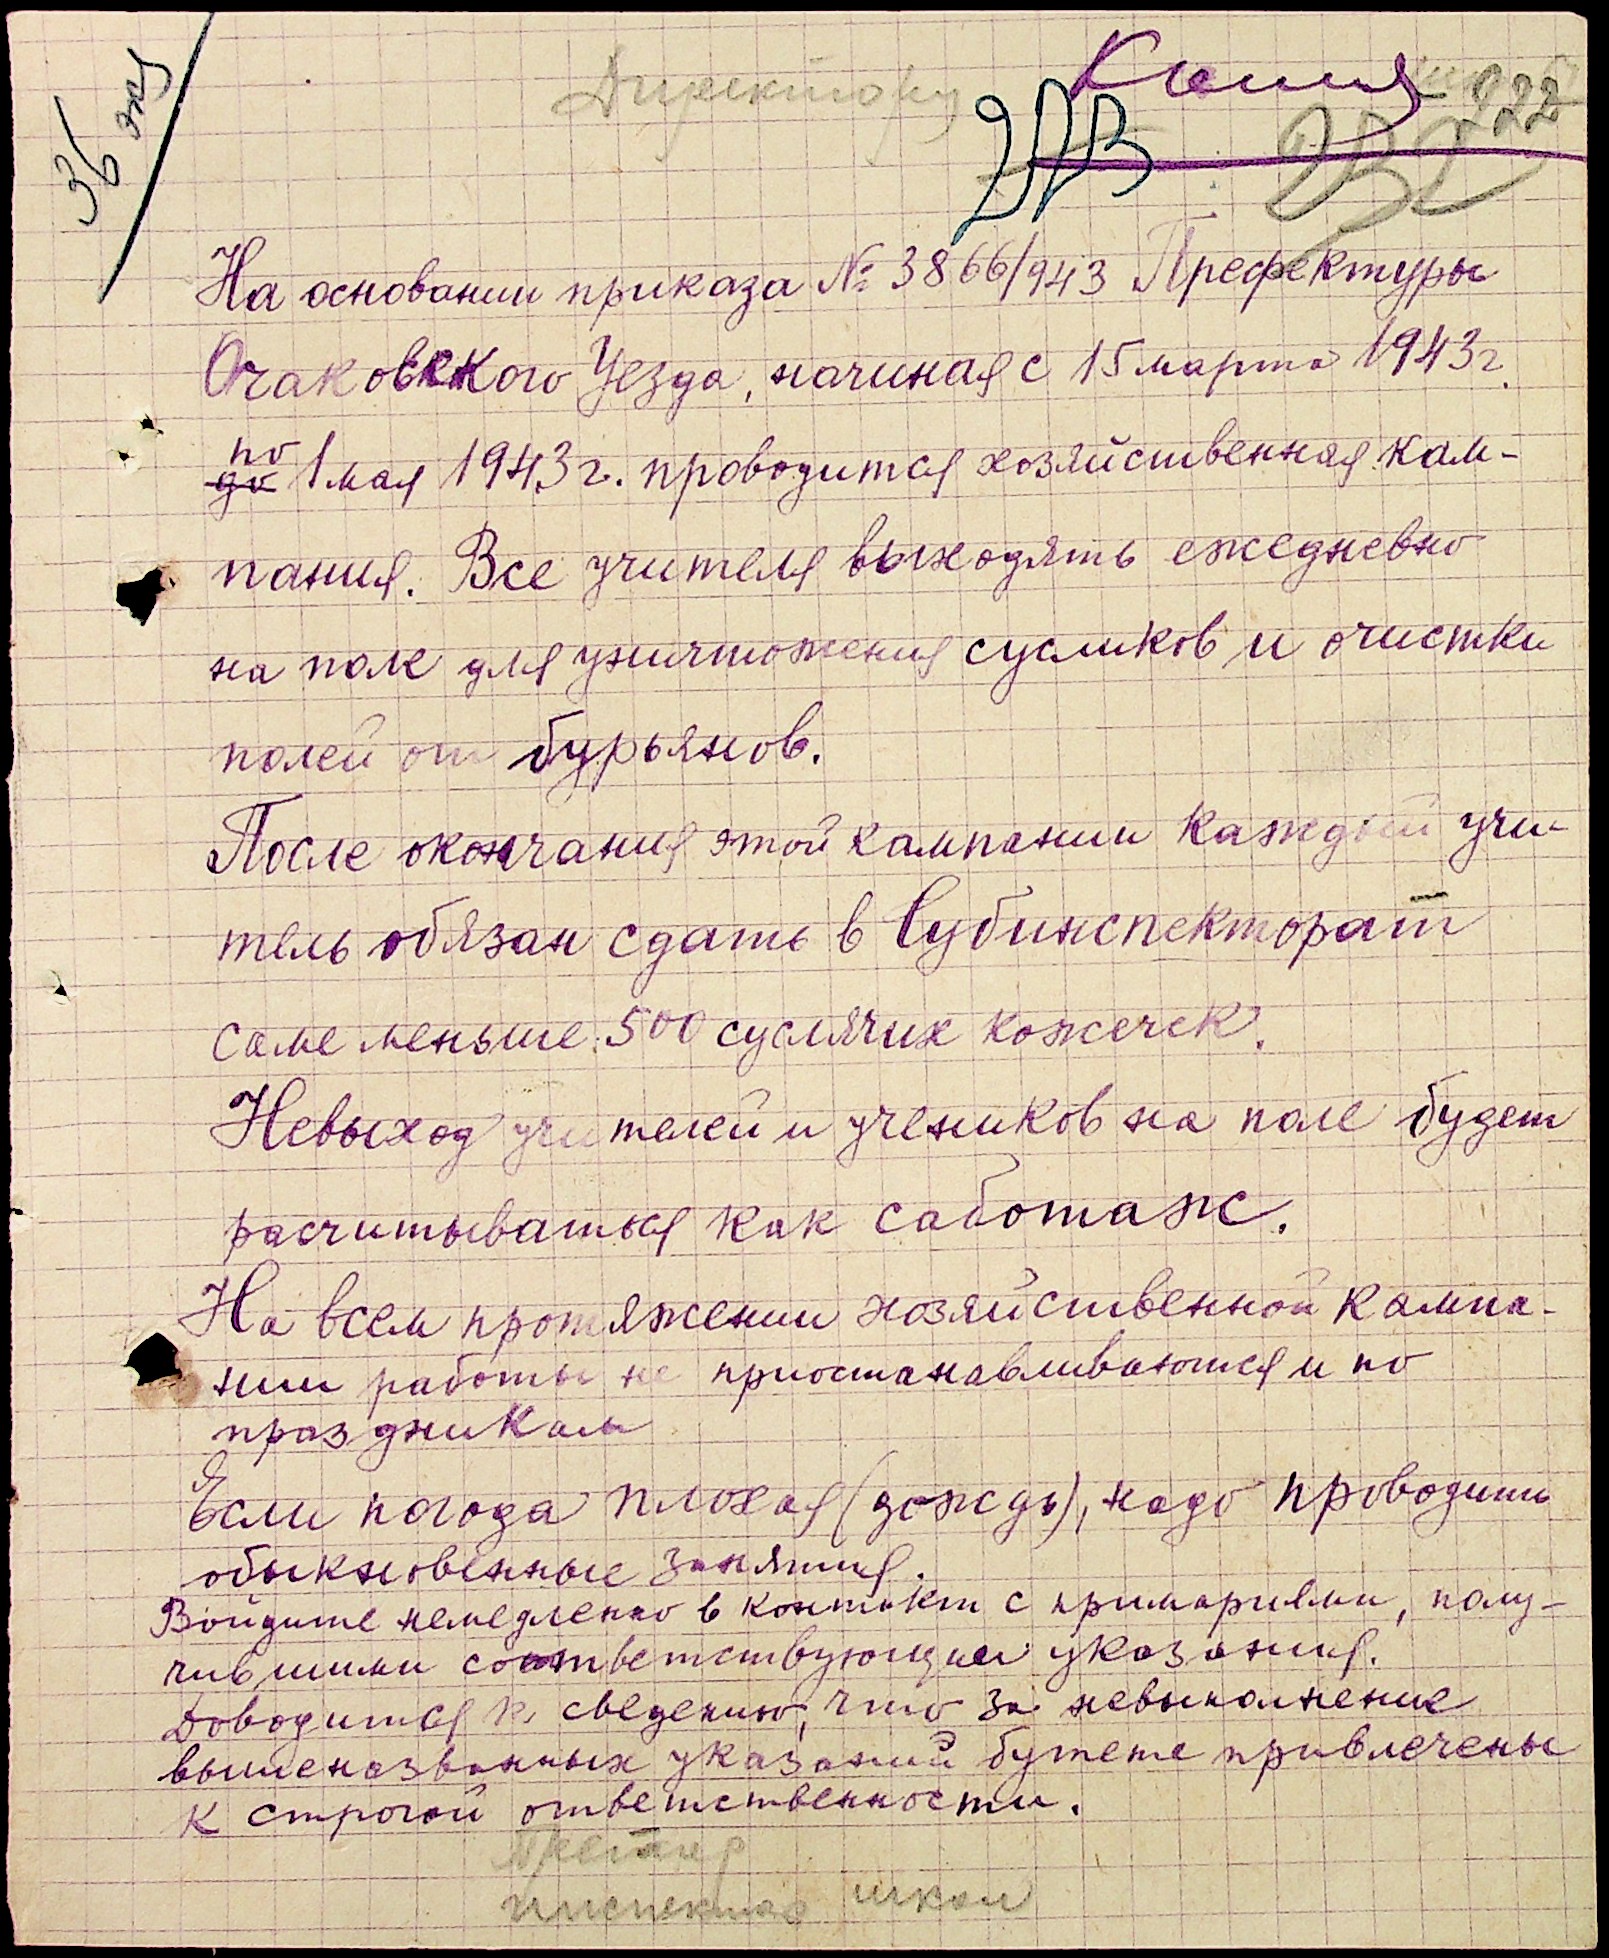 36 экз
Директору
Копия
222
На основании приказа № 3866/943 Префектуры
Очаковского Уезда, начиная с 15 марта 1943 г.
по
до 1 мая 1943 г. проводится хозяйственная кам-
пания. Все учителя выходять ежедневно
на поле для уничтожения сусликов и очистки
полей от бурьянов.
После окончания этой кампании каждый учи-
тель обязан сдать в Субинспекторат
саме меньше 500 суслячих кожечек.
Невыход учителей и учеников на поле будет
расчитываться как саботаж.
На всем протяжении хозяйственной кампа-
нии работы не приостанавливаются и по
праздникам
Если погода плохая (дождь), надо проводить
обыкновенные занятия.
Войдите немедленно в контакт с примариями, полу-
чившими соответствующии указания.
Доводится к сведению, что за невыполнение
вышеназванных указаний бутете привлечены
к строгой ответственности.
Инспектор школ